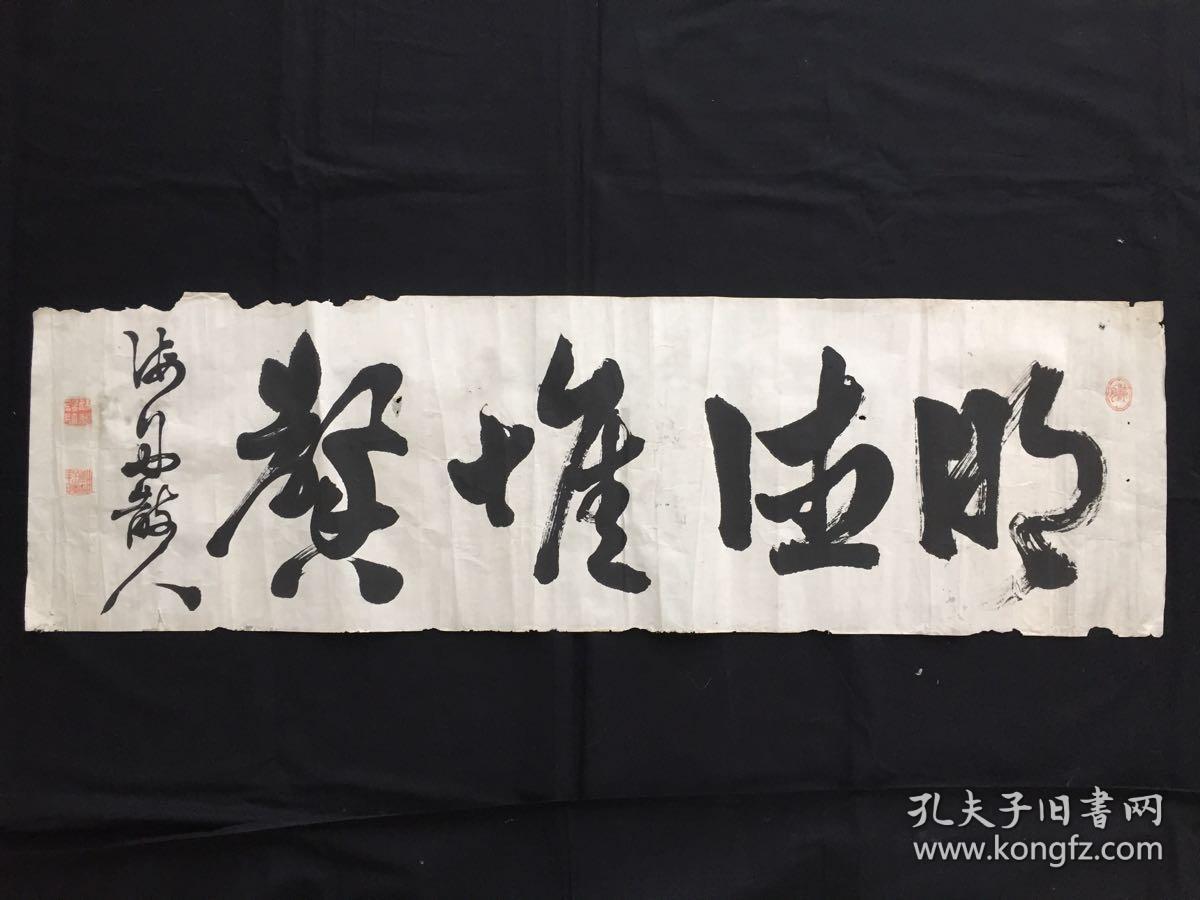 明德惟馨
海舟散人
孔夫子旧书网
www.kongfz.com